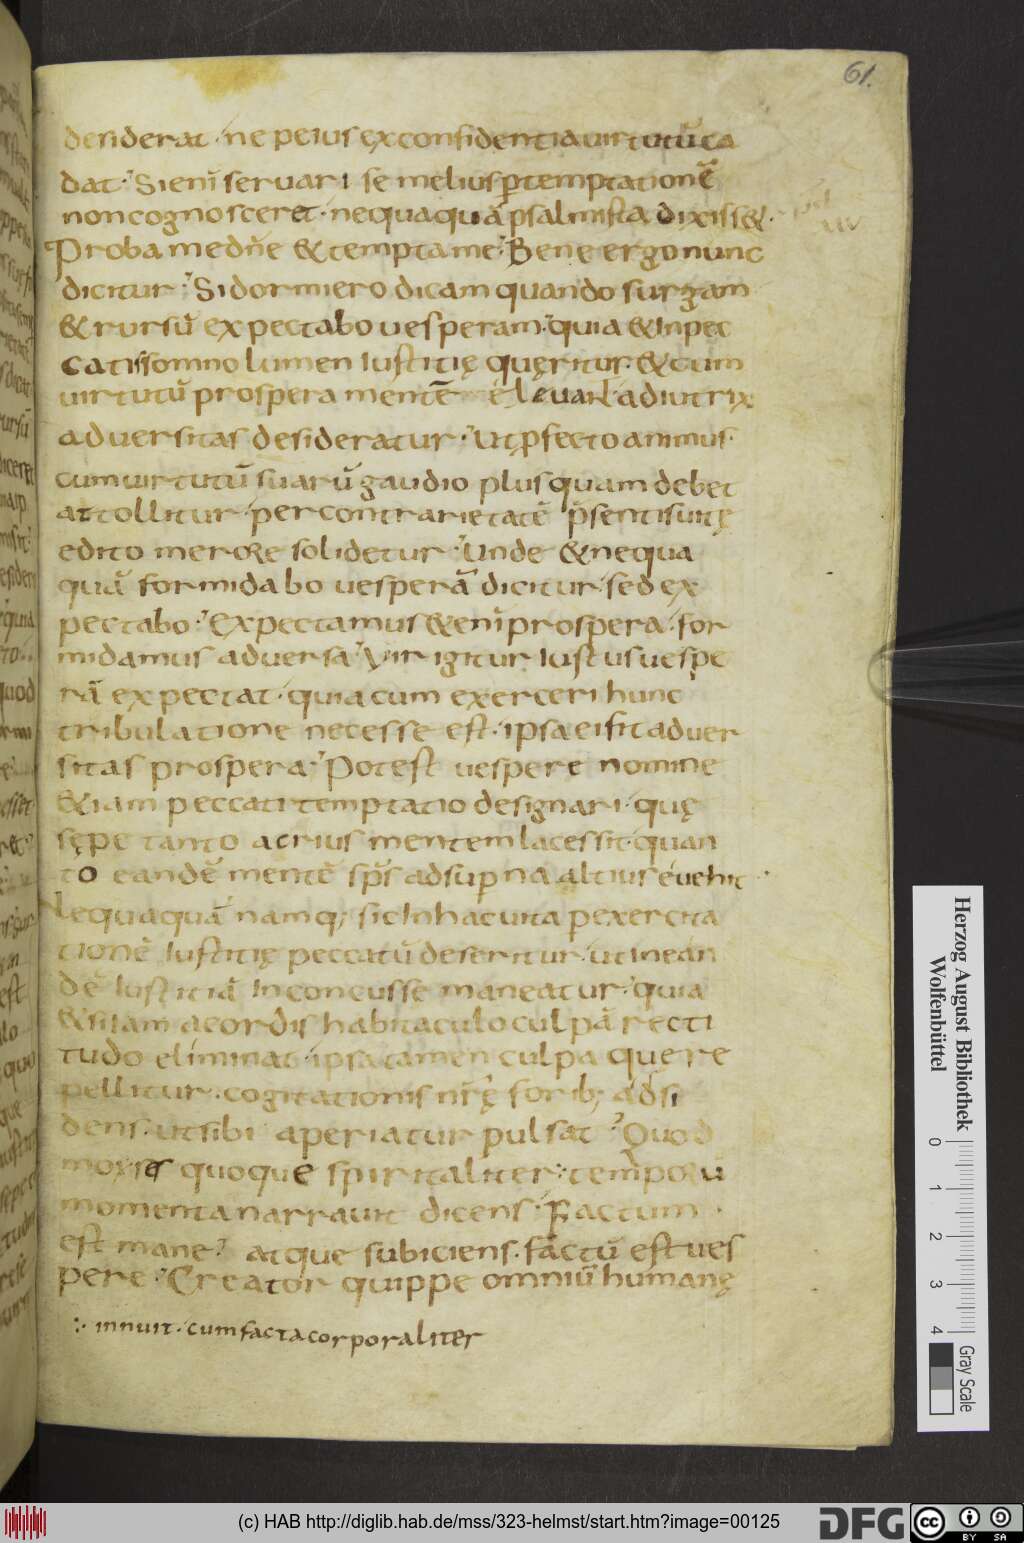 61.
desiderat · ne peius ex confidentia uirtutū ca
dat · Si eni seruari se melius ptemptationē
non cognosceret · nequaquā psalmista dixiss& ·
Proba me dn̄e & tempta me · Bene ergo nunc
dicitur · Si dormiero dicam quando surgam
& rursū expectabo uesperam · quia & in pec
catis somno lumen iustitię quęritur · & cum
uirtutū prospera mentē eleuant adiutrix
aduersitas desideratur · Ut pfecto animus ·
cum uirtutū suarū gaudio plus quam debet
attollitur · per contrarietatē p̄sentis uitę
edito merore solidetur · Unde & nequa
quā formidabo uesperā dicitur · sed ex
pectabo · Expectamus & eni prospera · for
midamus aduersa · Vir igitur iustus uespe
rā expectat · quia cum exerceri hunc
tribulatione necesse est · ipsa ei fit aduer
sitas prospera · Potest uespere nomine
& iam peccati temptatio designari · quę
sępe tanto acrius mentem lacessit · quan
to eandē mentē sp̄s ad supna altius euehit ·
Nequaquā namq; sic in hac uita pexercita
tionē iustitię peccatū deseritur · ut in ean
dē iustitiā inconcusse maneatur · quia
& si iam a cordis habitaculo culpā recti
tudo eliminat · ipsa tamen culpa que re
pellitur · cogitationis nr̄ę forib; adsi
dens · ut sibi aperiatur pulsat · Quod
moyses quoque spiritaliter ⁖ temporū
momenta narrauit dicens · Factum ·
est mane · atque subiciens · factū est ues
pere · Creator quippe omniū humanę
⁖ innuit · cum facta corporaliter
Herzog August Bibliothek
Wolfenbüttel
0 1 2 3 4
Gray Scale
(c) HAB http://diglib.hab.de/mss/323-helmst/start.htm?image=00125
DFG
cc BY SA